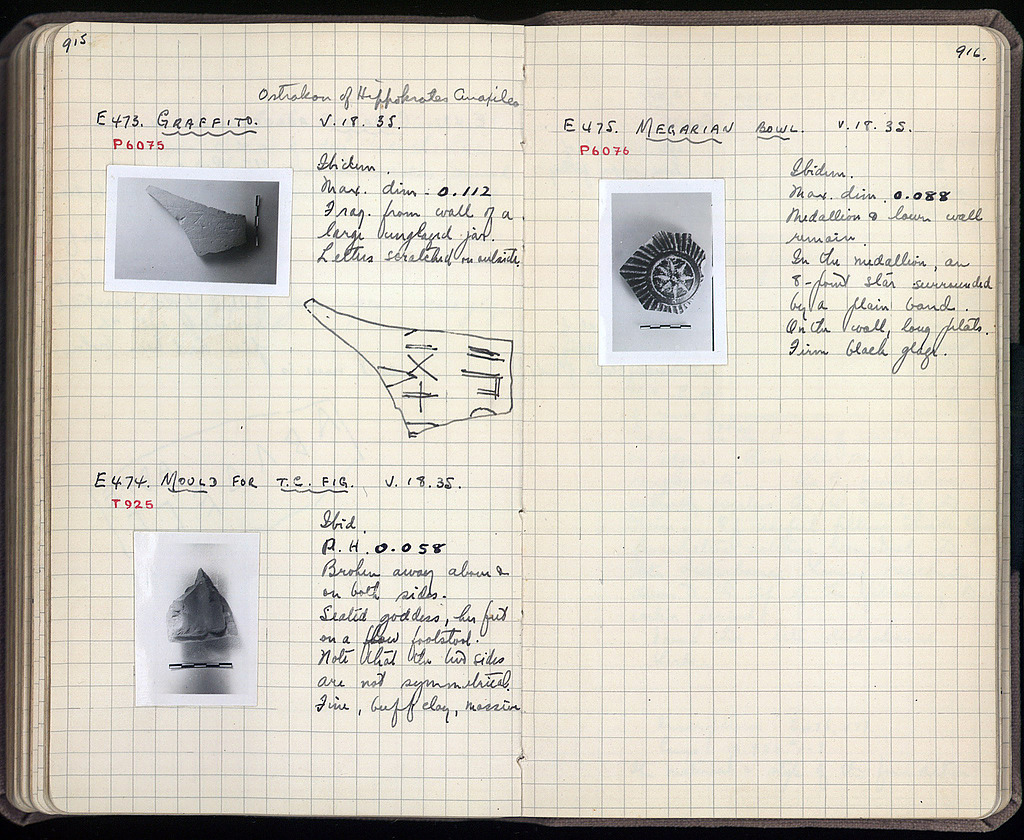 915
Ostrakon of Hippokrates Anaxileo
E473. GRAFFITO. V.18.35.
P6075
Ibidem.
Max. dim. 0.112
Frag. from wall of a
large unglazed jar.
Letters scratched on outside.
E474. MOULD FOR T.C. FIG. V.18.35.
T925
Ibid.
P.H. 0.058
Broken away above &
on both sides.
Seated goddess, her feet
on a low footstool.
Note that the two sides
are not symmetrical.
Fine, buff clay, massive
916.
E475. MEGARIAN BOWL. V.18.35.
P6076
Ibidem.
Max. dim. 0.088
Medallion & lower wall
remain.
In the medallion, an
8-point star surrounded
by a plain band.
On the wall, long petals.
Firm black glaze.